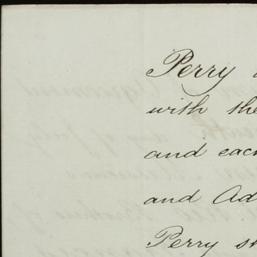 Perry
with the
and each
and Ad
Perry